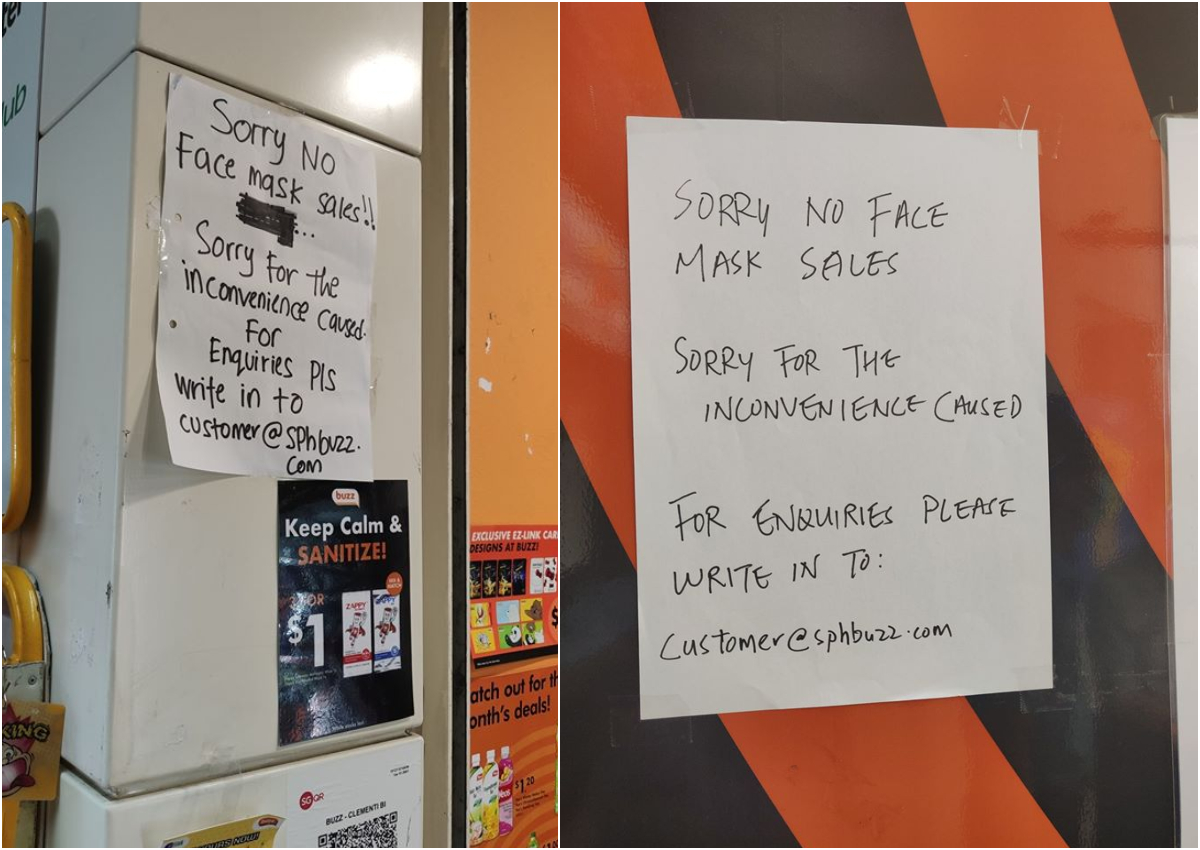 Sorry NO
Face mask sales!!
...
Sorry for the
inconvenience caused.
For
Enquiries Pls
write in to
customer@sphbuzz.
com
buzz
Keep Calm &
SANITIZE!
FOR
$1
ZAPPY
EXCLUSIVE EZ-LINK CAR
DESIGNS AT BUZZ!
atch out for th
onth's deals!
$1.20
KING
SGQR
BUZZ - CLEMENTI BI
NOW!
ub
SORRY NO FACE
MASK SALES
SORRY FOR THE
INCONVENIENCE CAUSED
FOR ENQUIRIES PLEASE
WRITE IN TO:
customer@sphbuzz.com